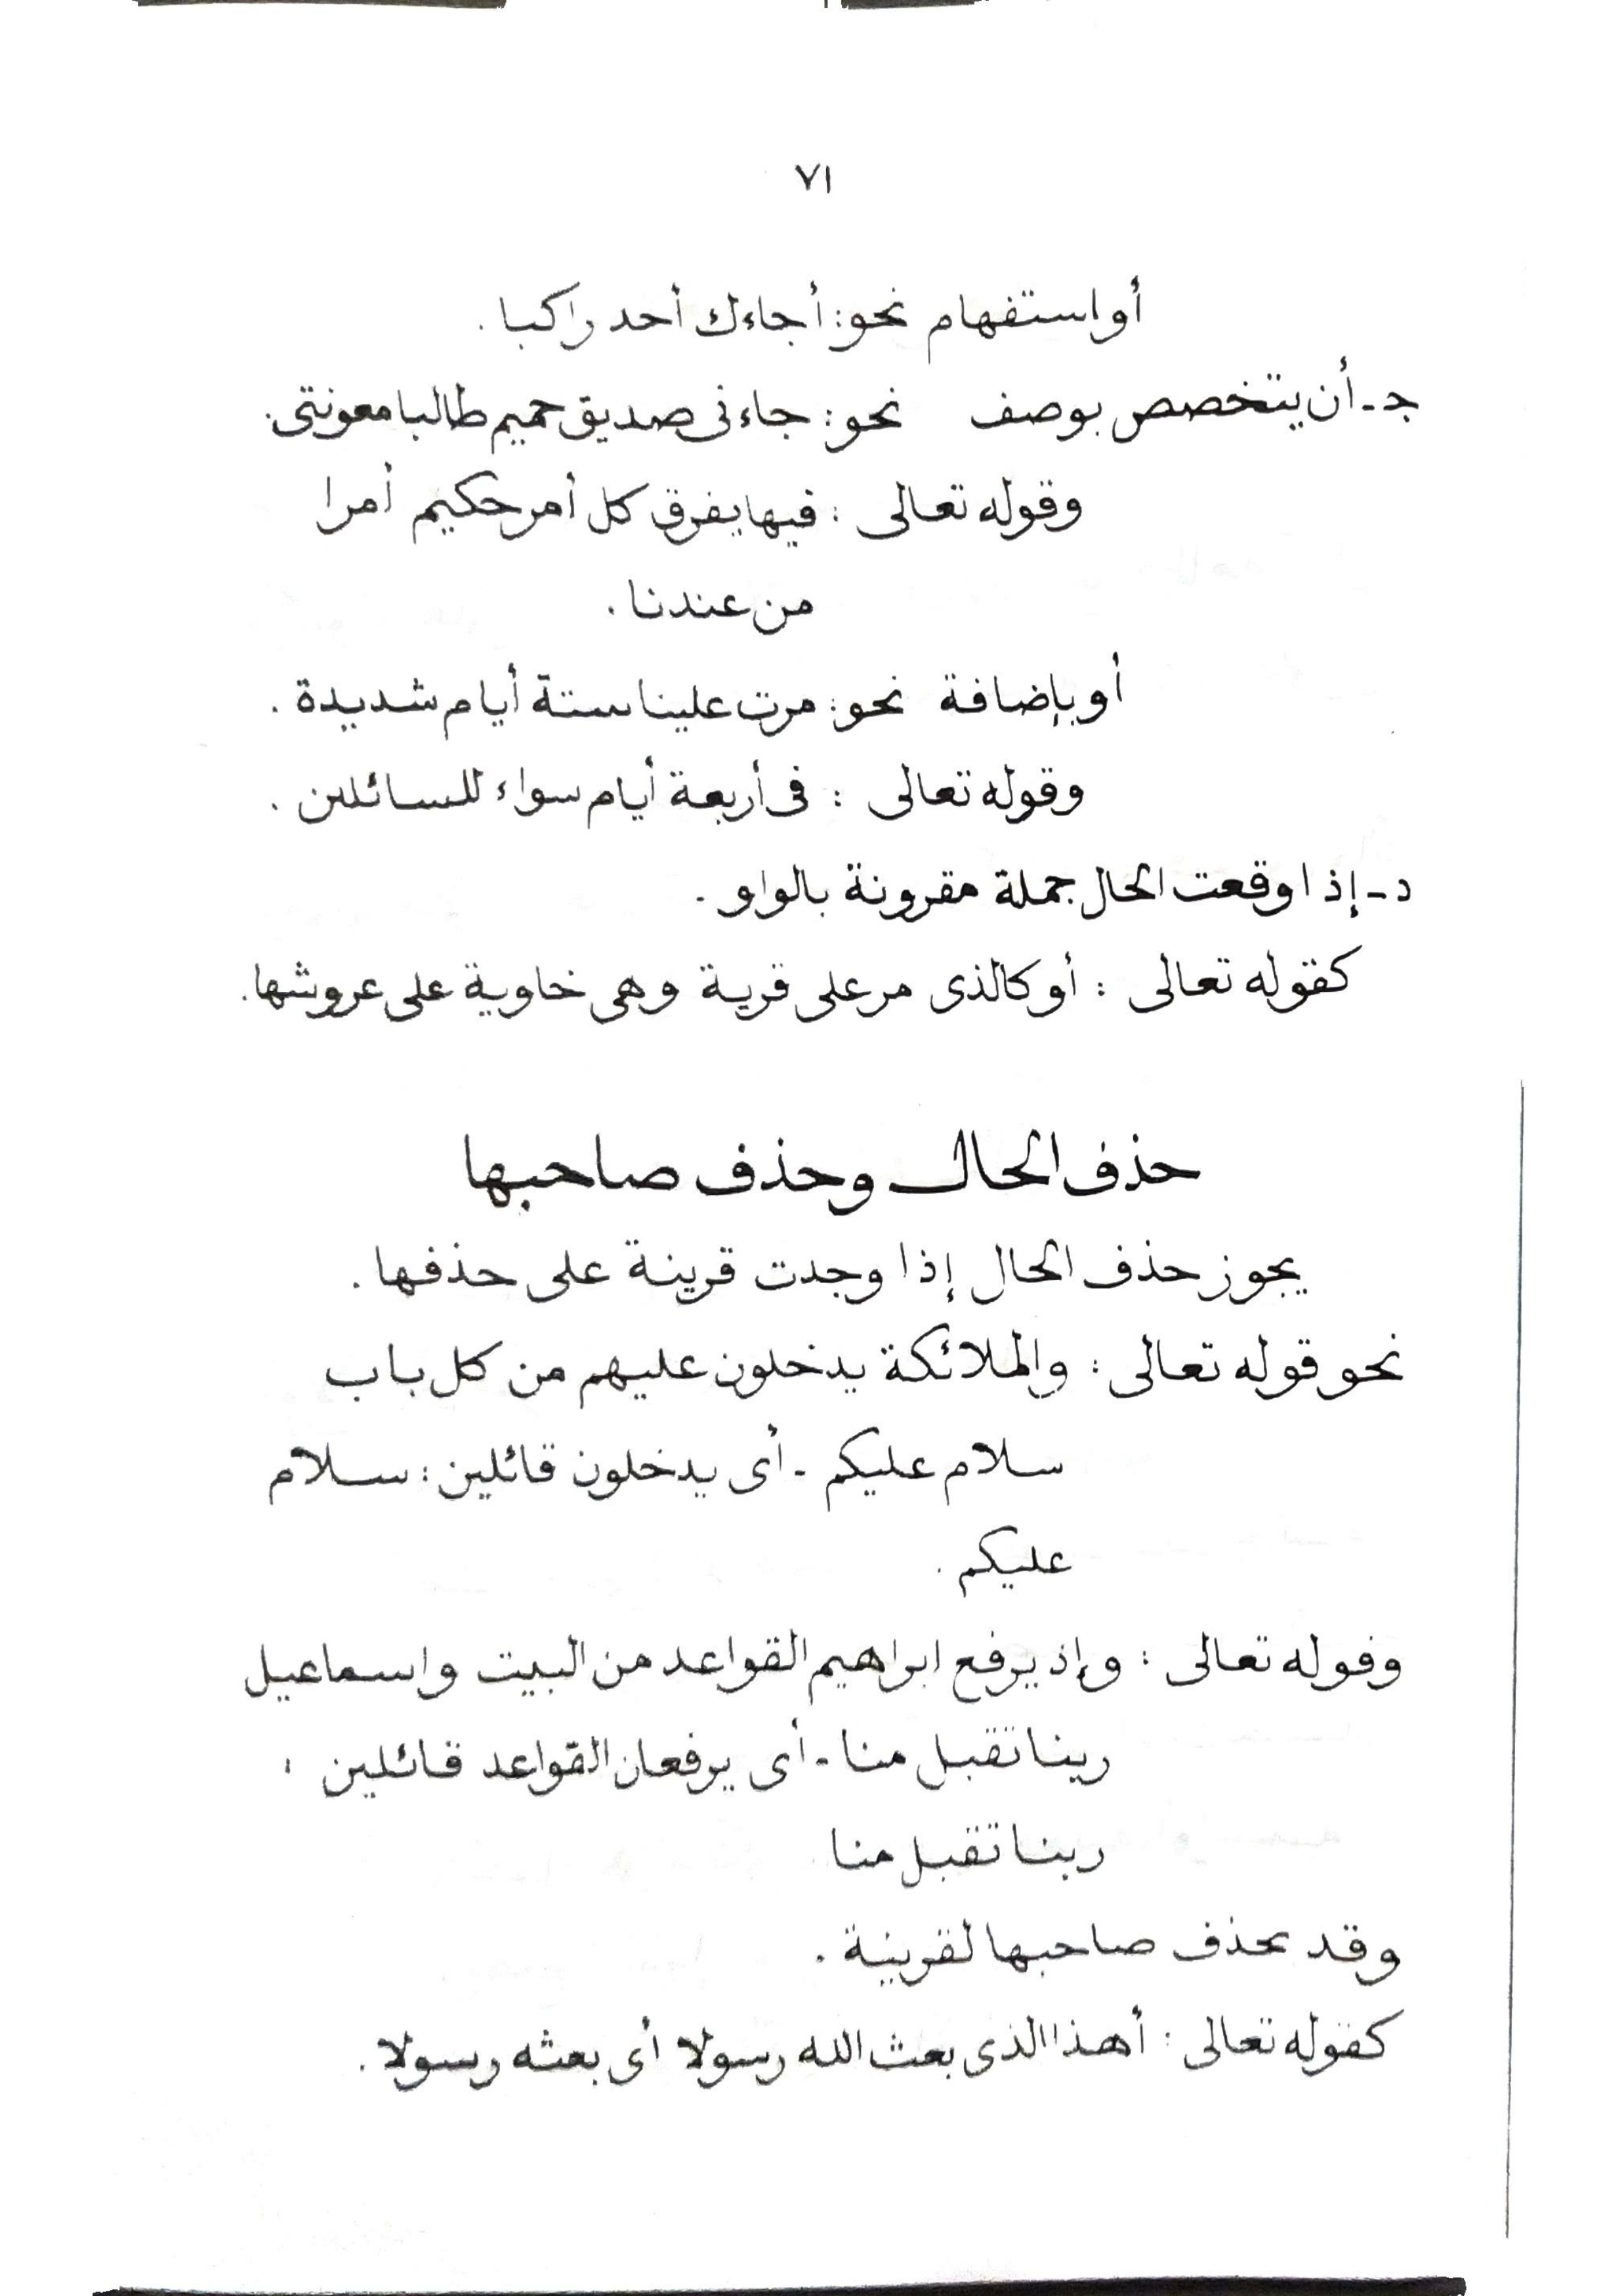 ٧١
أو استفهام نحو: أجاءك أحد راكبا.
جـ - أن يتخصص بوصف نحو: جاءنى صديق حميم طالبا معونتى.
وقوله تعالى : فيها يفرق كل أمر حكيم أمرا
من عندنا .
أو بإضافة نحو: مرت علينا ستة أيام شديدة .
وقوله تعالى : فى أربعة أيام سواء للسائلين .
د - إذا وقعت الحال جملة مقرونة بالواو .
كقوله تعالى : أو كالذى مر على قرية وهى خاوية على عروشها.
حذف الحال وحذف صاحبها
يجوز حذف الحال إذا وجدت قرينة على حذفها .
نحو قوله تعالى : والملائكة يدخلون عليهم من كل باب
سلام عليكم - أى يدخلون قائلين : سلام
عليكم .
وقوله تعالى : وإذ يرفع ابراهيم القواعد من البيت واسماعيل
ربنا تقبل منا - أى يرفعان القواعد قائلين :
ربنا تقبل منا
وقد يحذف صاحبها لقرينة .
كقوله تعالى : أهذا الذى بعث الله رسولا أى بعثه رسولا .